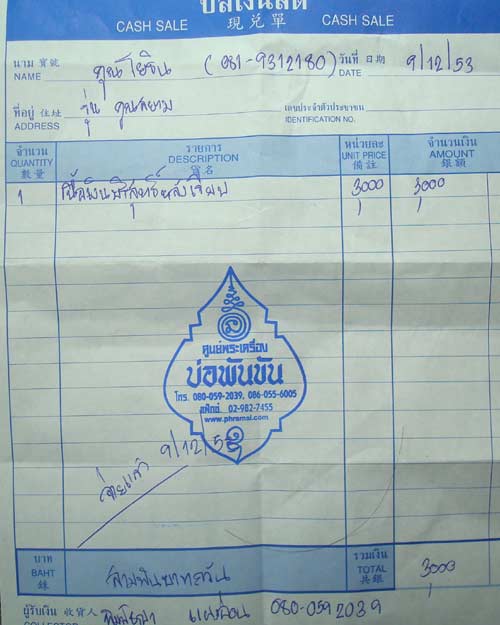 บิลเงินสด
CASH SALE 現兌單 CASH SALE
นาม 寶號
NAME
(081-9312180)
วันที่ 日期
DATE
9/12/53
ที่อยู่ 住址
ADDRESS
เลขประจำตัวประชาชน
IDENTIFICATION NO.
จำนวน
QUANTITY
數量
รายการ
DESCRIPTION
貨名
หน่วยละ
UNIT PRICE
備註
จำนวนเงิน
AMOUNT
銀額
1
3000 3000
ศูนย์พระเครื่อง
บ่อพันขัน
โทร. 080-059-2039, 086-055-6005
แฟ็กซ์. 02-982-7455
www.phramai.com
จ่ายแล้ว 9/12/53
บาท
BAHT
銖
สามพันบาทถ้วน
รวมเงิน
TOTAL
共銀
3000
ผู้รับเงิน 收貨人
COLLECTOR
080-059 2039